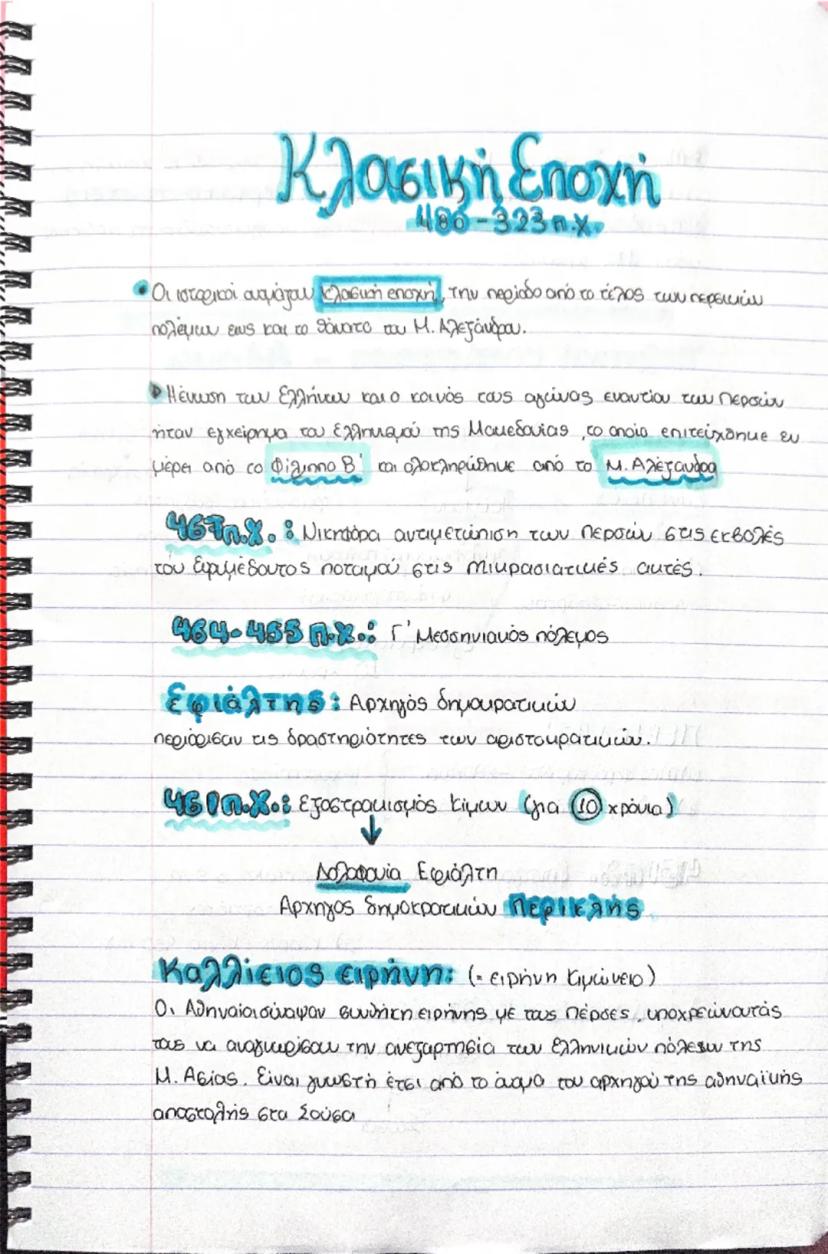 Κλασική Εποχή
480 - 323 π.χ.
Οι ιστορικοί ονομάζουν κλασική εποχή, την περίοδο από το τέλος των περσικών
πολέμων εως και το θάνατο του Μ. Αλεξάνδρου.
Η ένωση των Ελλήνων και ο κοινός τους αγώνας εναντίον των Περσών
ήταν εγχείρημα του Ελληνισμού της Μακεδονίας, το οποίο επιτεύχθηκε εν
μέρει από το Φίλιππο Β' και ολοκληρώθηκε από το Μ. Αλέξανδρο
467 π.χ. : Νικηφόρα αντιμετώπιση των Περσών στις εκβολές
του Ευρυμέδοντος ποταμού στις Μικρασιατικές ακτές.
464-455 π.χ.: Γ' Μεσσηνιακός πόλεμος
Εφιάλτης: Αρχηγός δημοκρατικών
περιόρισαν τις δραστηριότητες των αριστοκρατικών.
461 π.χ.: Εξοστρακισμός Κίμων (για 10 χρόνια)
Δολοφονία Εφιάλτη
Αρχηγος δημοκρατικών Περικλής
Καλλίειος ειρήνη: (= ειρήνη Κιμώνειο)
Οι Αθηναίοι σύναψαν συνθήκη ειρήνης με τους Πέρσες, υποχρεώνοντάς
τους να αναγνωρίσουν την ανεξαρτησία των ελληνικών πόλεων της
Μ. Ασίας. Είναι γνωστή έτσι από το όνομα του αρχηγού της αθηναϊκής
αποστολής στα Σούσα